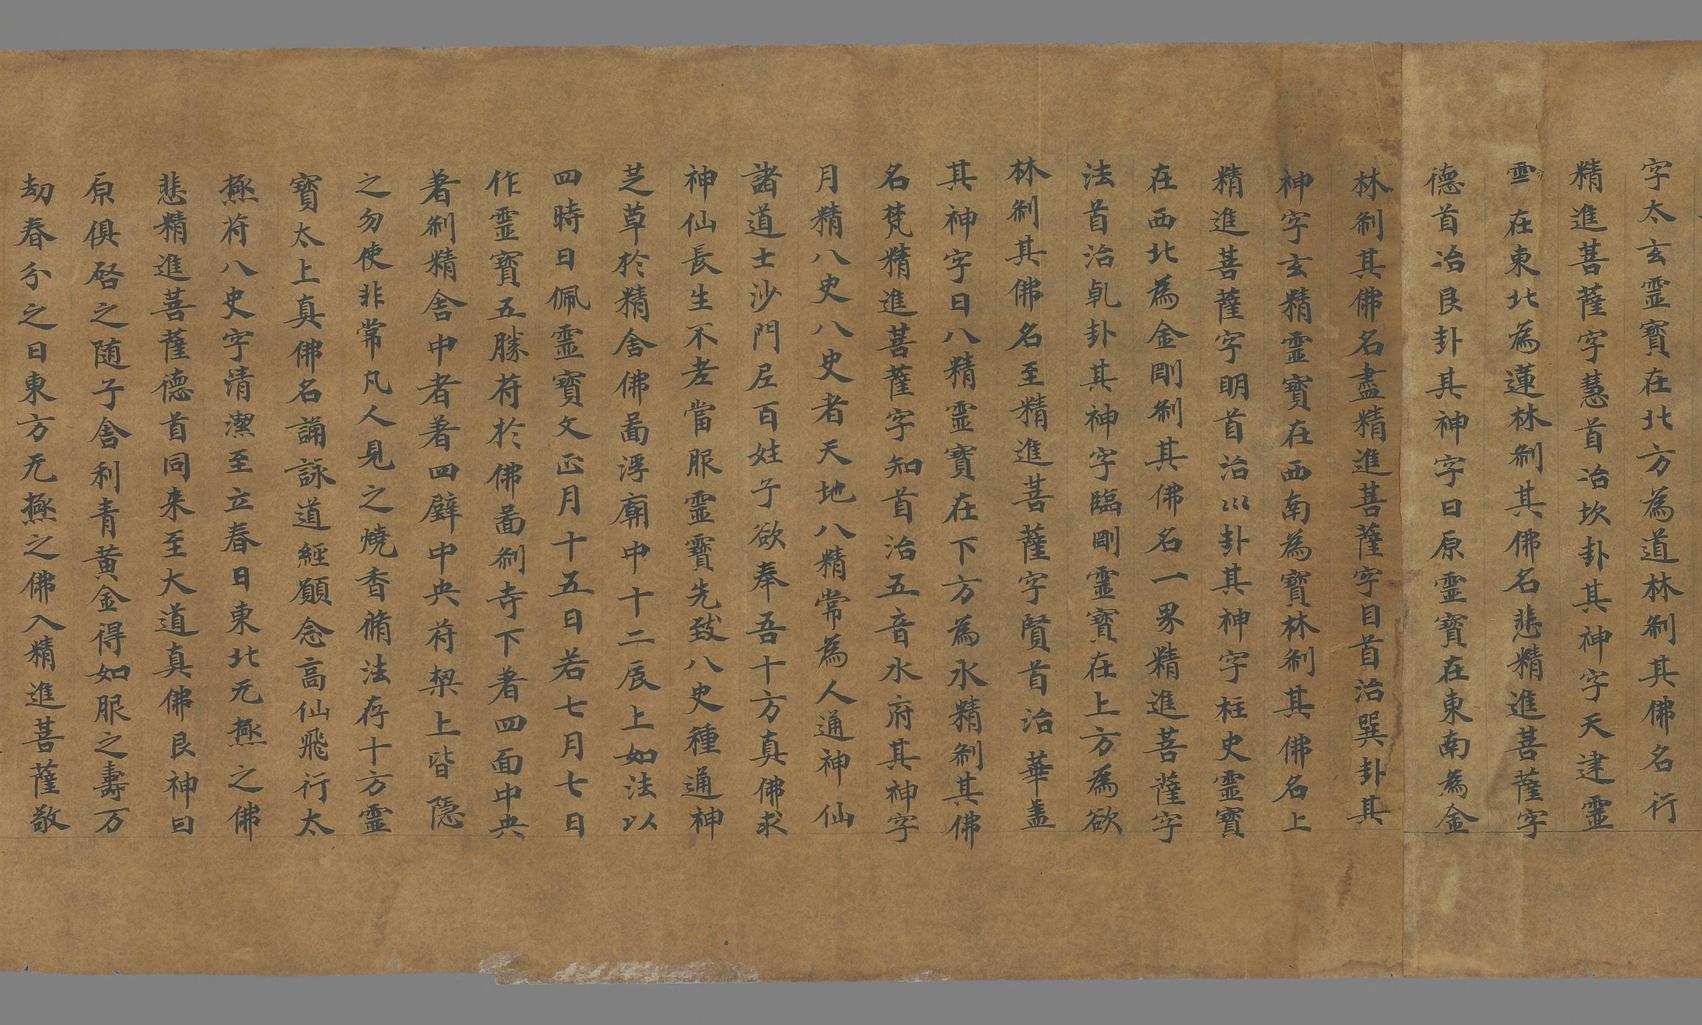 字太玄靈寶在北方為道林剎其佛名行
精進菩薩字慧首治坎卦其神字天建靈
在東北為蓮林剎其佛名悲精進菩薩字
德首治艮卦其神字曰原靈寶在東南為金
林剎其佛名盡精進菩薩字目首治巽卦其
神字玄精靈寶在西南為寶林剎其佛名上
精進菩薩字明首治巛卦其神字柱史靈寶
在西北為金剛剎其佛名一界精進菩薩字
法首治乹卦其神字臨剛靈寶在上方為欲
林剎其佛名至精進菩薩字賢首治華盖
其神字曰八精靈寶在下方為水精剎其佛
名梵精進菩薩字知首治五音水府其神字
月精八史八史者天地八精常為人通神仙
諸道士沙門尼百姓子欲奉吾十方真佛求
神仙長生不老當服靈寶先致八史種通神
芝草於精舍佛啚浮廟中十二辰上如法以
四時日佩靈寶文正月十五日若七月七日
作靈寶五勝苻於佛啚剎寺下著四面中央
著剎精舍中者著四壁中央苻𣓉上皆隱
之勿使非常凡人見之燒香脩法存十方靈
寶太上真佛名誦詠道經願念高仙飛行太
極苻八史字清潔至立春日東北无極之佛
悲精進菩薩德首同来至大道真佛艮神曰
原俱啓之随子舍利青黃金得如服之壽万
劫春分之日東方无極之佛入精進菩薩敬